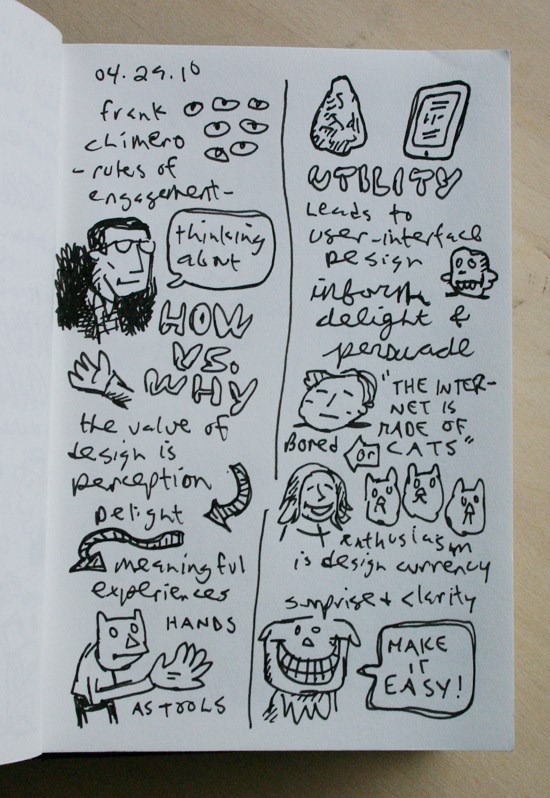 04.29.10
frank
chimero
- rules of
engagement -
thinking
about
HOW
VS.
WHY
the value of
design is
perception
Delight
meaningful
experiences
HANDS
AS TOOLS
UTILITY
Leads to
user-interface
Design
inform
delight &
persuade
"THE INTER-
NET IS
MADE OF
CATS"
Bored or
enthusiasm
is design currency
surprise + clarity
MAKE
IT
EASY!